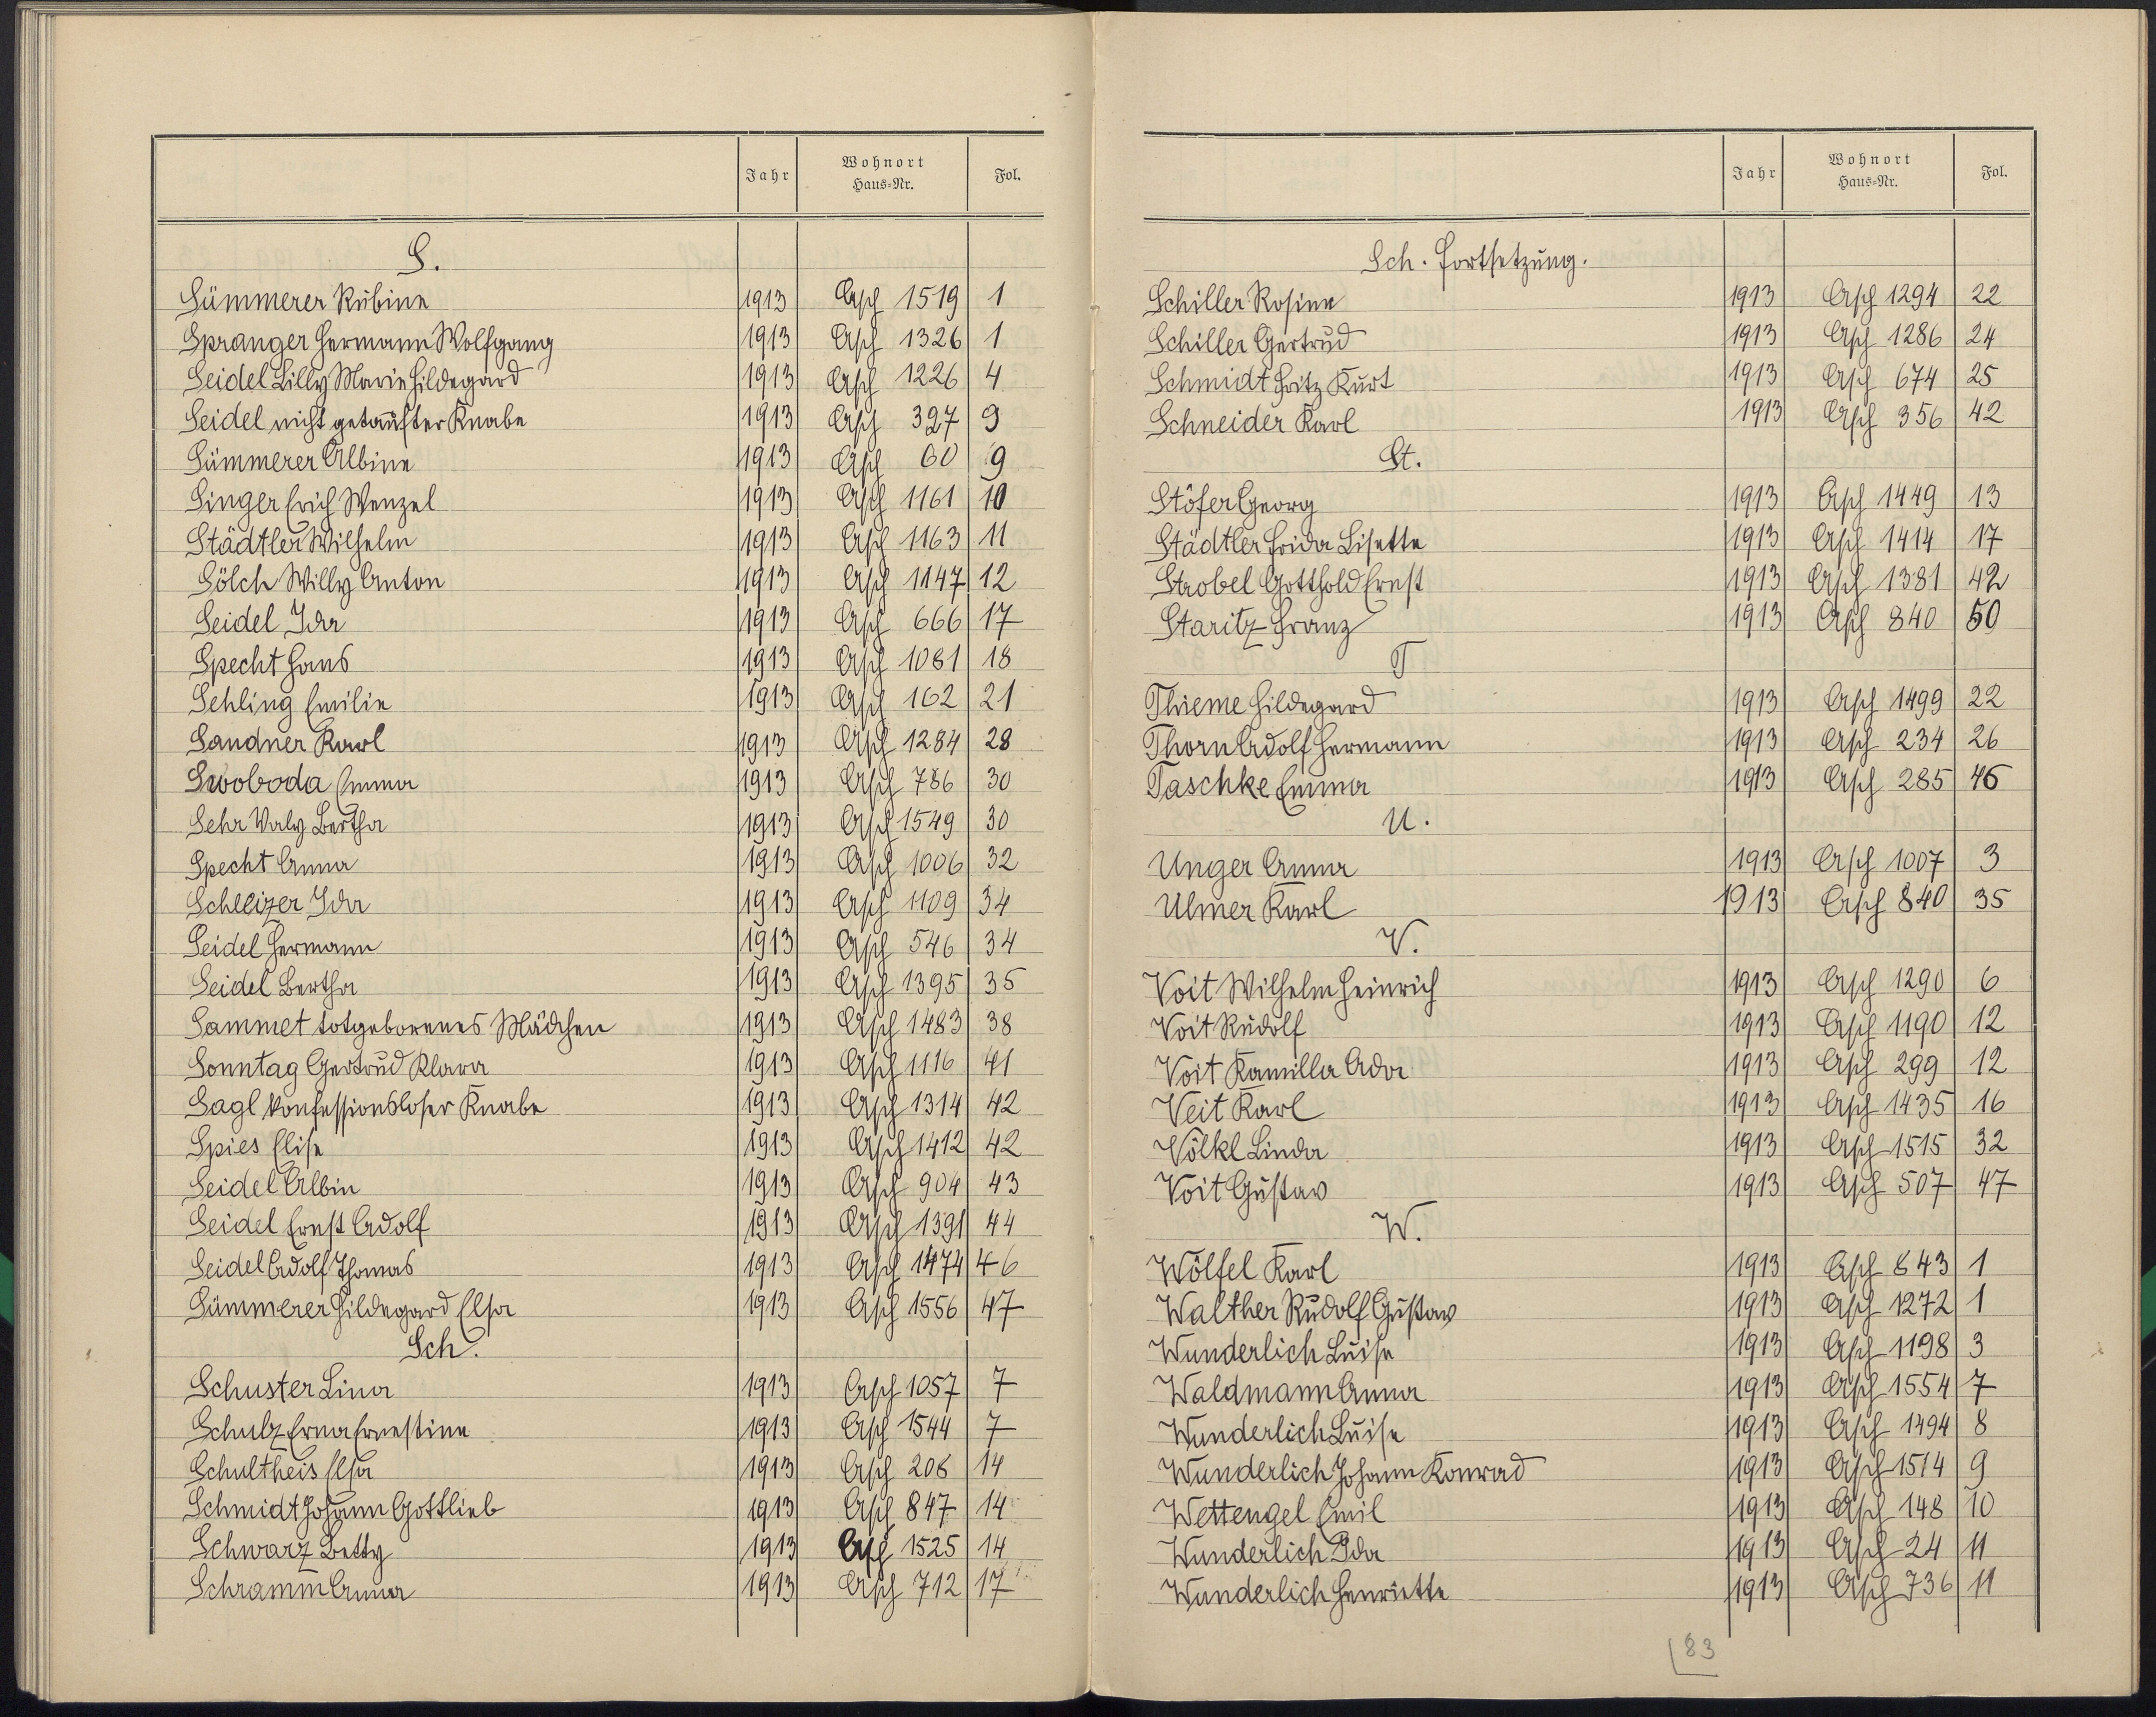 Jahr Wohnort Haus-Nr. Fol.
S.
Sümmerer Rubine 1913 Asch 1519 1
Spranger Hermann Wolfgang 1913 Asch 1326 1
Seidel Lilly Marie Hildegard 1913 Asch 1226 4
Seidel nicht getaufter Knabe 1913 Asch 327 9
Sümmerer Albine 1913 Asch 60 9
Singer Erich Wenzel 1913 Asch 1161 10
Städtler Wilhelm 1913 Asch 1163 11
Sölch Willy Anton 1913 Asch 1147 12
Seidel Ida 1913 Asch 666 17
Specht Hans 1913 Asch 1081 18
Sehling Emilie 1913 Asch 162 21
Sandner Karl 1913 Asch 1284 28
Swoboda Emma 1913 Asch 786 30
Sehr Valy Bertha 1913 Asch 1549 30
Specht Anna 1913 Asch 1006 32
Schleizer Ida 1913 Asch 1109 34
Seidel Hermann 1913 Asch 546 34
Seidel Bertha 1913 Asch 1395 35
Sammet totgeborenes Mädchen 1913 Asch 1483 38
Sonntag Gertrud Klara 1913 Asch 1116 41
Sagl konfessionsloser Knabe 1913 Asch 1314 42
Spies Elise 1913 Asch 1412 42
Seidel Albin 1913 Asch 904 43
Seidel Ernst Adolf 1913 Asch 1391 44
Seidel Adolf Thomas 1913 Asch 1474 46
Sümmerer Hildegard Elsa 1913 Asch 1556 47
Sch.
Schuster Lina 1913 Asch 1057 7
Schulz Erna Ernestine 1913 Asch 1544 7
Schultheis Elsa 1913 Asch 208 14
Schmidt Johann Gottlieb 1913 Asch 847 14
Schwarz Betty 1913 Asch 1525 14
Schramm Anna 1913 Asch 712 17
Jahr Wohnort Haus-Nr. Fol.
Sch. Fortsetzung.
Schiller Rosine 1913 Asch 1294 22
Schiller Gertrud 1913 Asch 1286 24
Schmidt Fritz Kurt 1913 Asch 674 25
Schneider Karl 1913 Asch 356 42
St.
Stöfer Georg 1913 Asch 1449 13
Städtler Frida Lisette 1913 Asch 1414 17
Strobel Gotthold Ernst 1913 Asch 1381 42
Staritz Franz 1913 Asch 840 50
T
Thieme Hildegard 1913 Asch 1499 22
Thorn Adolf Hermann 1913 Asch 234 26
Taschke Emma 1913 Asch 285 45
U.
Unger Anna 1913 Asch 1007 3
Ulmer Karl 1913 Asch 840 35
V.
Voit Wilhelm Heinrich 1913 Asch 1290 6
Voit Rudolf 1913 Asch 1190 12
Voit Kamilla Ada 1913 Asch 299 12
Veit Karl 1913 Asch 1435 16
Völkl Linda 1913 Asch 1515 32
Voit Gustav 1913 Asch 507 47
W.
Wölfel Karl 1913 Asch 843 1
Walther Rudolf Gustav 1913 Asch 1272 1
Wunderlich Luise 1913 Asch 1198 3
Waldmann Anna 1913 Asch 1554 7
Wunderlich Luise 1913 Asch 1494 8
Wunderlich Johann Konrad 1913 Asch 1514 9
Wettengel Emil 1913 Asch 148 10
Wunderlich Ida 1913 Asch 24 11
Wunderlich Henriette 1913 Asch 736 11
83